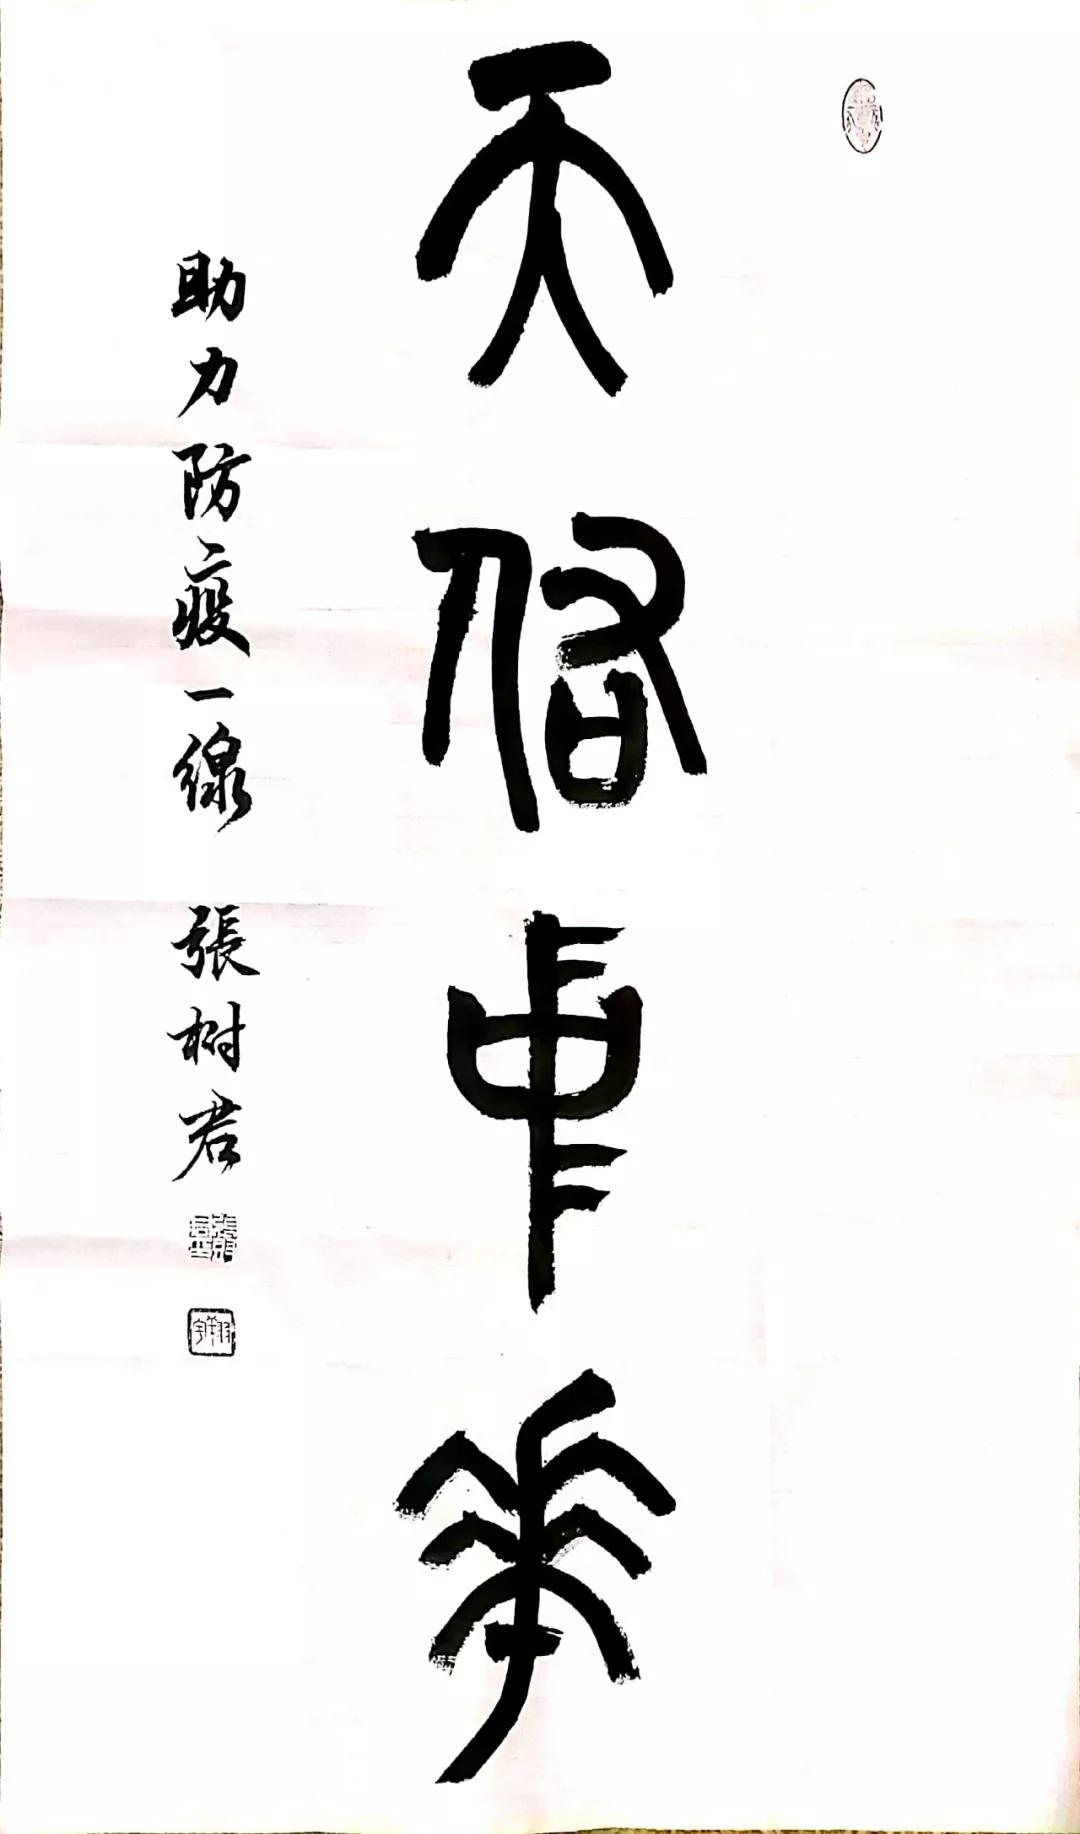 天佑中華
助力防疫一線 張树君